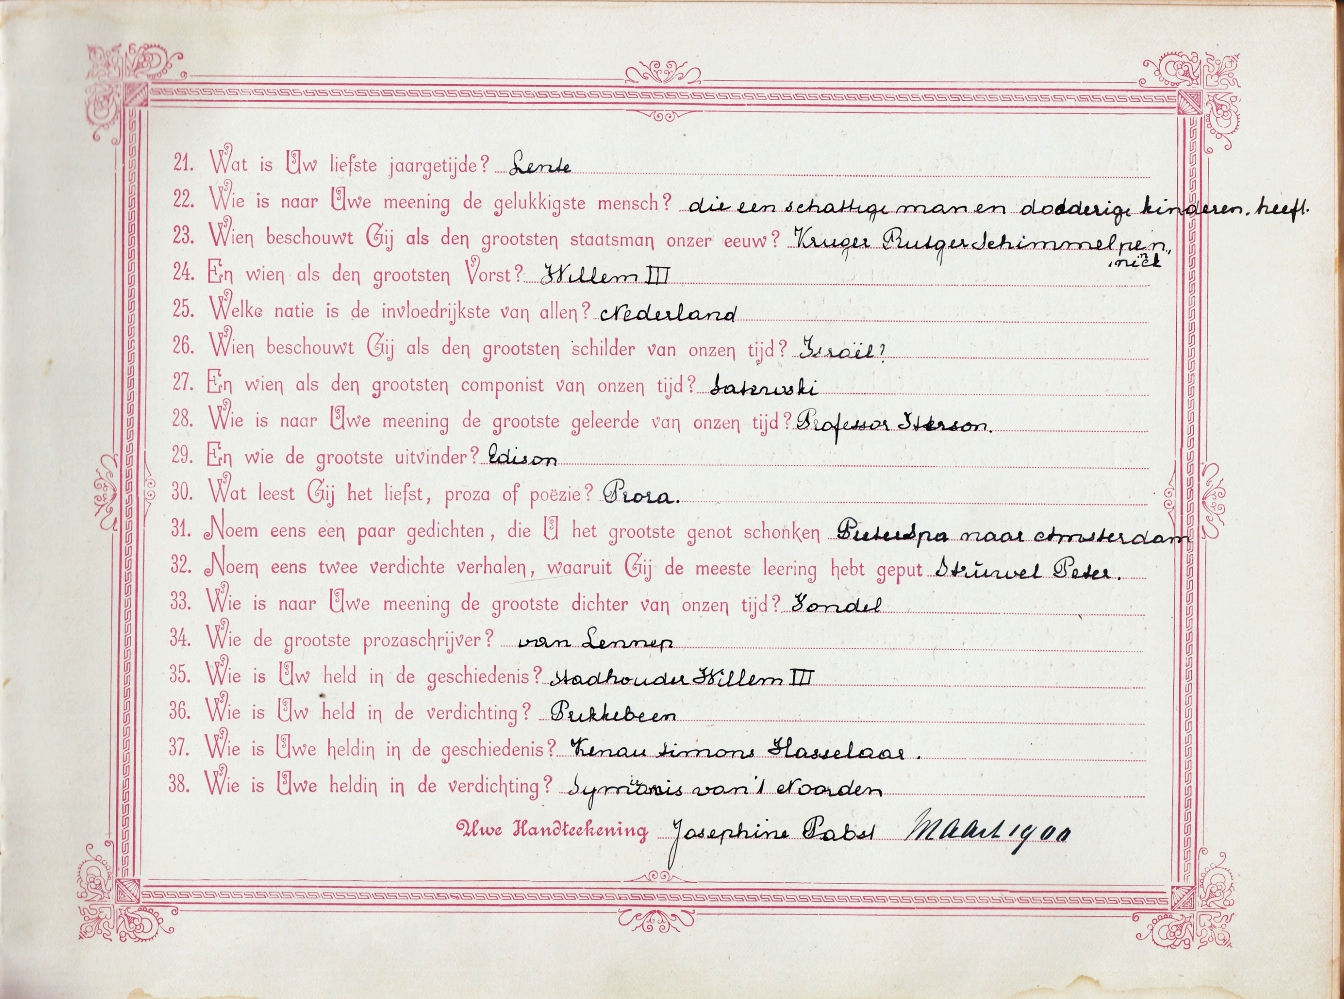 21. Wat is Uw liefste jaargetijde? Lente
22. Wie is naar Uwe meening de gelukkigste mensch? die een schattige man en dodderige kinderen. heeft.
23. Wien beschouwt Gij als den grootsten staatsman onzer eeuw? Kruger Rutger Schimmelpen,
ninck
24. En wien als den grootsten Vorst? Willem III
25. Welke natie is de invloedrijkste van allen? Nederland
26. Wien beschouwt Gij als den grootsten schilder van onzen tijd? Israël?
27. En wien als den grootsten componist van onzen tijd?
28. Wie is naar Uwe meening de grootste geleerde van onzen tijd? Professor Iterson.
29. En wie de grootste uitvinder? Edison
30. Wat leest Gij het liefst, proza of poëzie? Proza.
31. Noem eens een paar gedichten, die U het grootste genot schonken Pieter Spa naar Amsterdam
32. Noem eens twee verdichte verhalen, waaruit Gij de meeste leering hebt geput Strŭwel Peter.
33. Wie is naar Uwe meening de grootste dichter van onzen tijd? Vondel
34. Wie de grootste prozaschrijver? van Lennep
35. Wie is Uw held in de geschiedenis? stadhouder Willem III
36. Wie is Uw held in de verdichting? Pukkebeen
37. Wie is Uwe heldin in de geschiedenis? Kenau Simons Hasselaar.
38. Wie is Uwe heldin in de verdichting? van 't Noorden
Uwe Handteekening Josephine Pabst Maart 1900